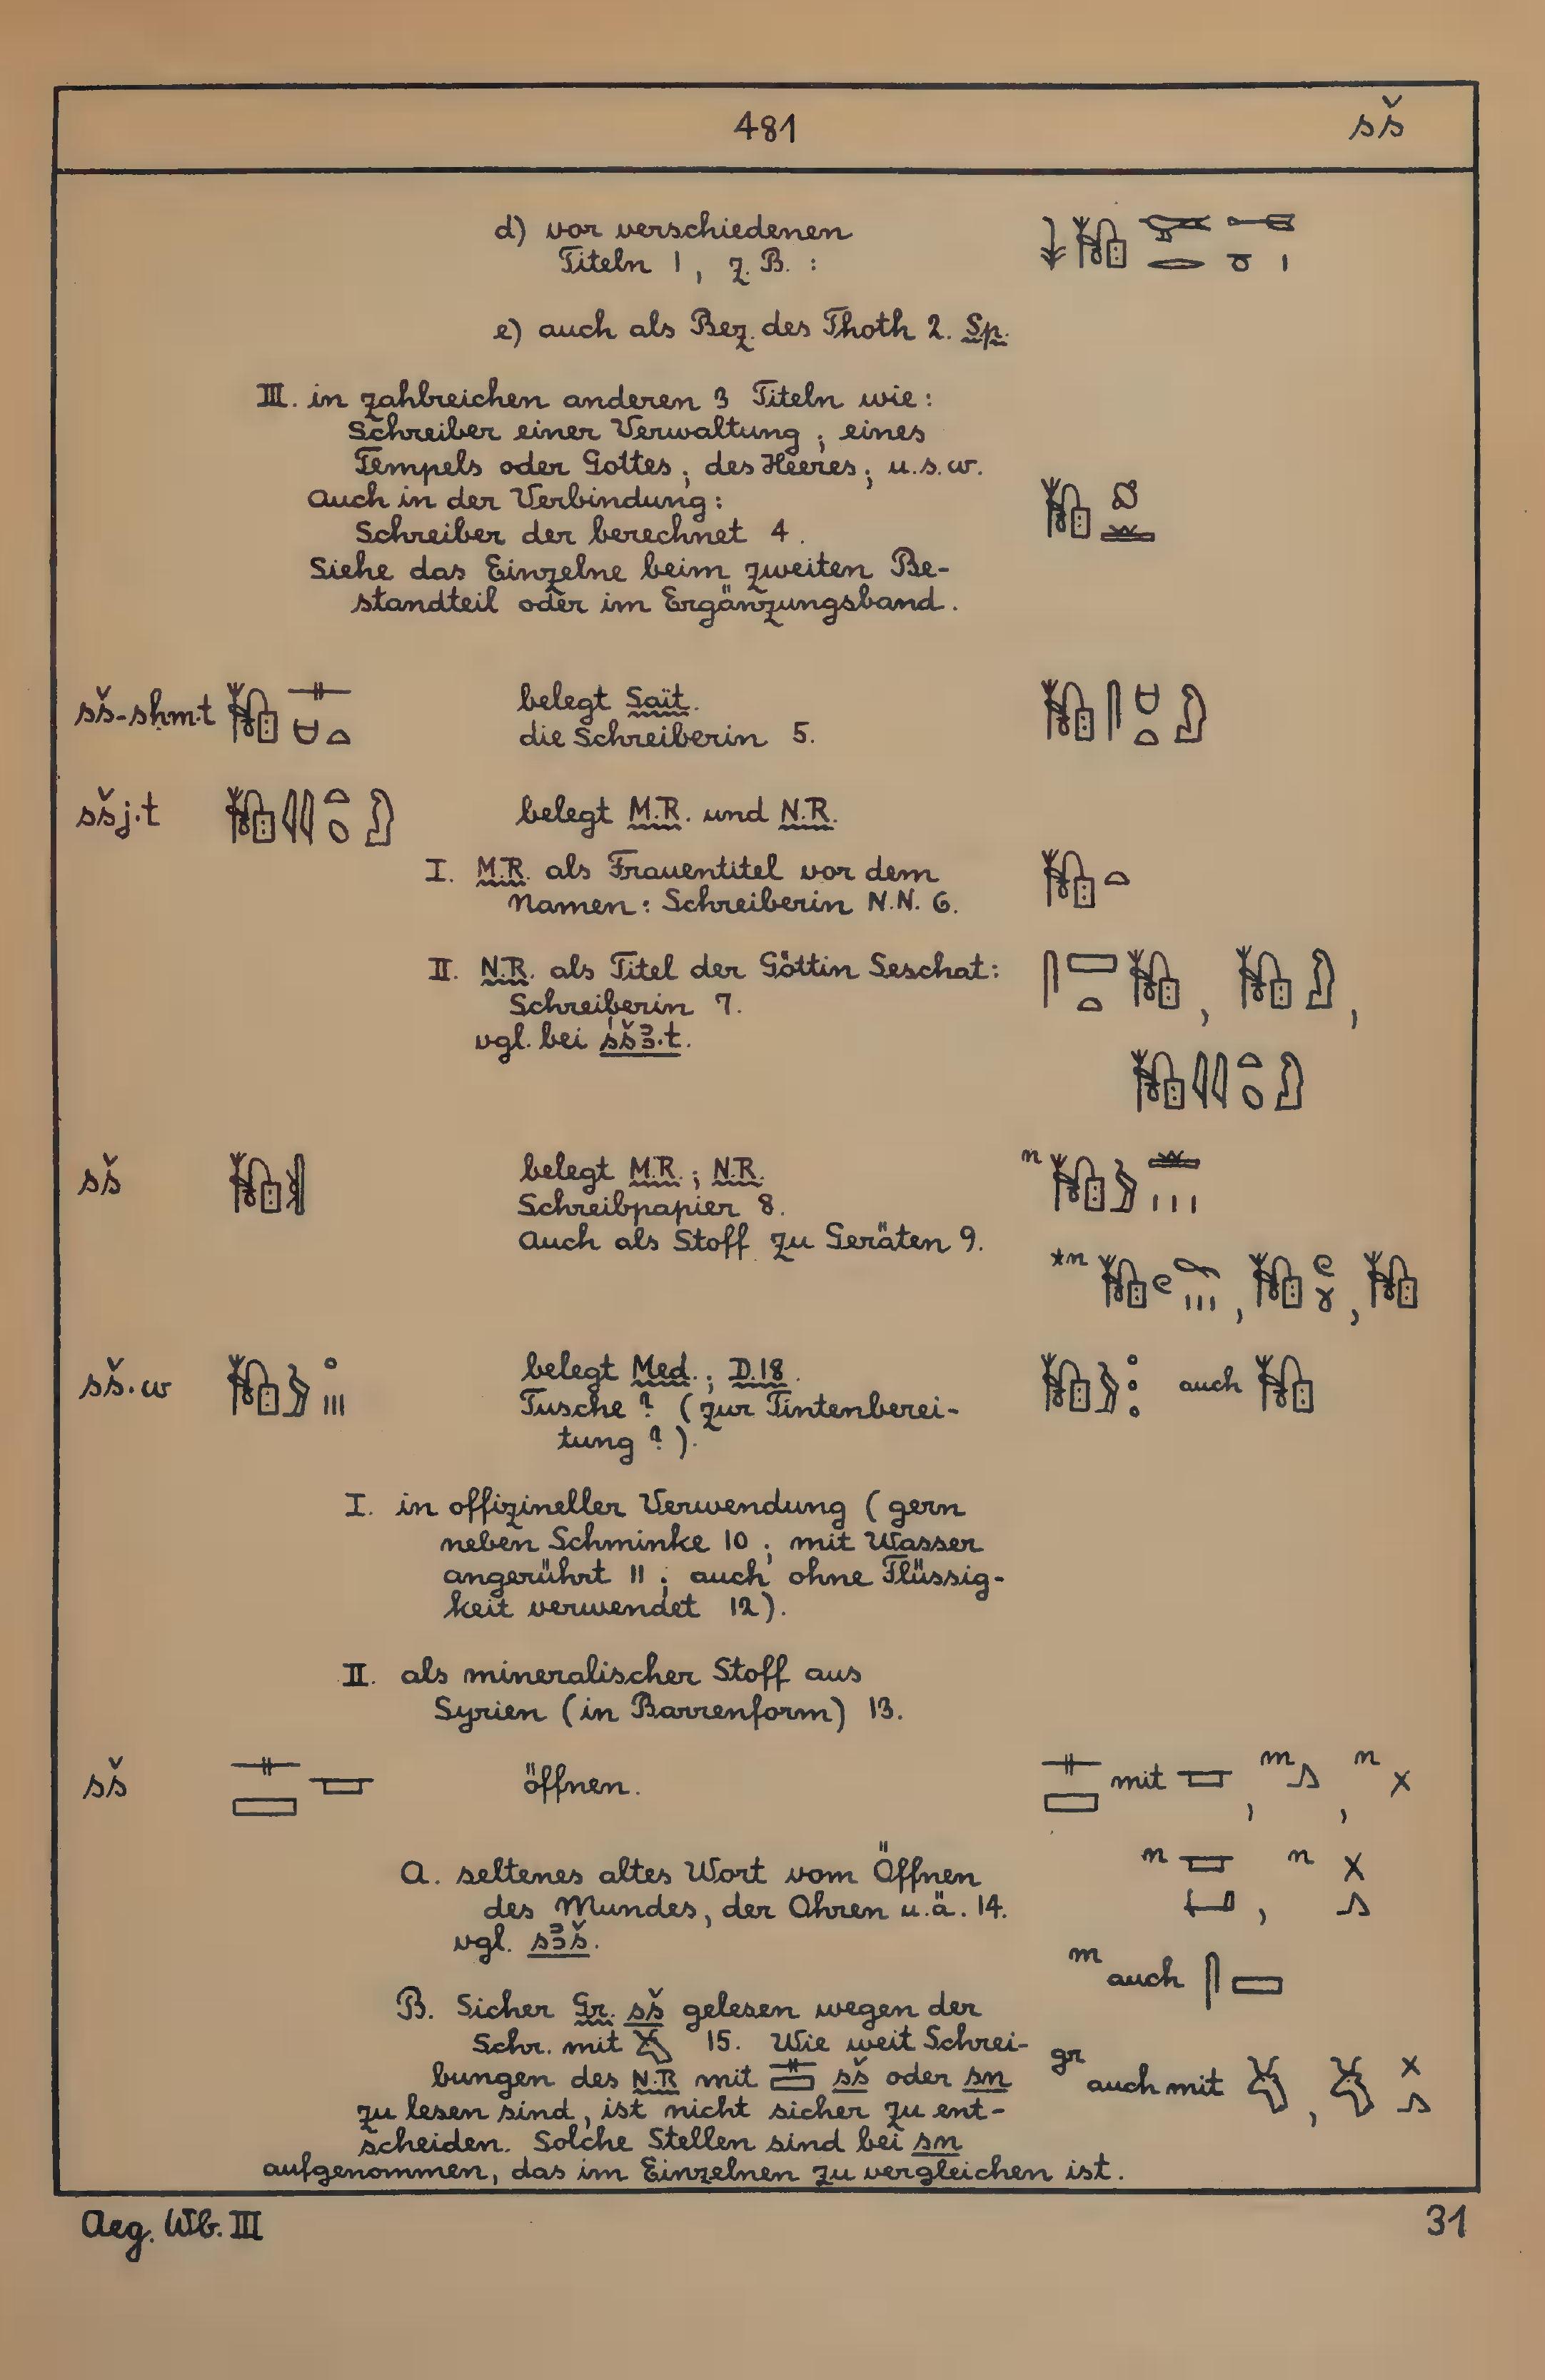 481 sš
d) vor verschiedenen
Titeln 1, z. B. :
e) auch als Bez. des Thoth 2. Sp.
III. in zahlreichen anderen 3 Titeln wie:
Schreiber einer Verwaltung; eines
Tempels oder Gottes; des Heeres; u.s.w.
Auch in der Verbindung:
Schreiber der berechnet 4.
Siehe das Einzelne beim zweiten Be-
standteil oder im Ergänzungsband.
sš-sḥm.t belegt Saït.
die Schreiberin 5.
sšj.t belegt M.R. und N.R.
I. M.R. als Frauentitel vor dem
Namen: Schreiberin N.N. 6.
II. N.R. als Titel der Göttin Seschat:
Schreiberin 7.
vgl. bei śšꜣ.t.
sš belegt M.R.; N.R. n
Schreibpapier 8.
Auch als Stoff zu Geräten 9. *n
sš.w belegt Med.; D.18. auch
Tusche? (zur Tintenberei-
tung?).
I. in offizineller Verwendung (gern
neben Schminke 10; mit Wasser
angerührt 11; auch ohne Flüssig-
keit verwendet 12).
II. als mineralischer Stoff aus
Syrien (in Barrenform) 13.
sš öffnen. mit , m , n
A. seltenes altes Wort vom Öffnen n , n
des Mundes, der Ohren u.ä. 14.
vgl. sꜣš. m auch
B. Sicher Gr. sš gelesen wegen der
Schr. mit 15. Wie weit Schrei-
bungen des N.R mit sš oder sn gr auch mit ,
zu lesen sind, ist nicht sicher zu ent-
scheiden. Solche Stellen sind bei sn
aufgenommen, das im Einzelnen zu vergleichen ist.
Aeg. Wb. III 31